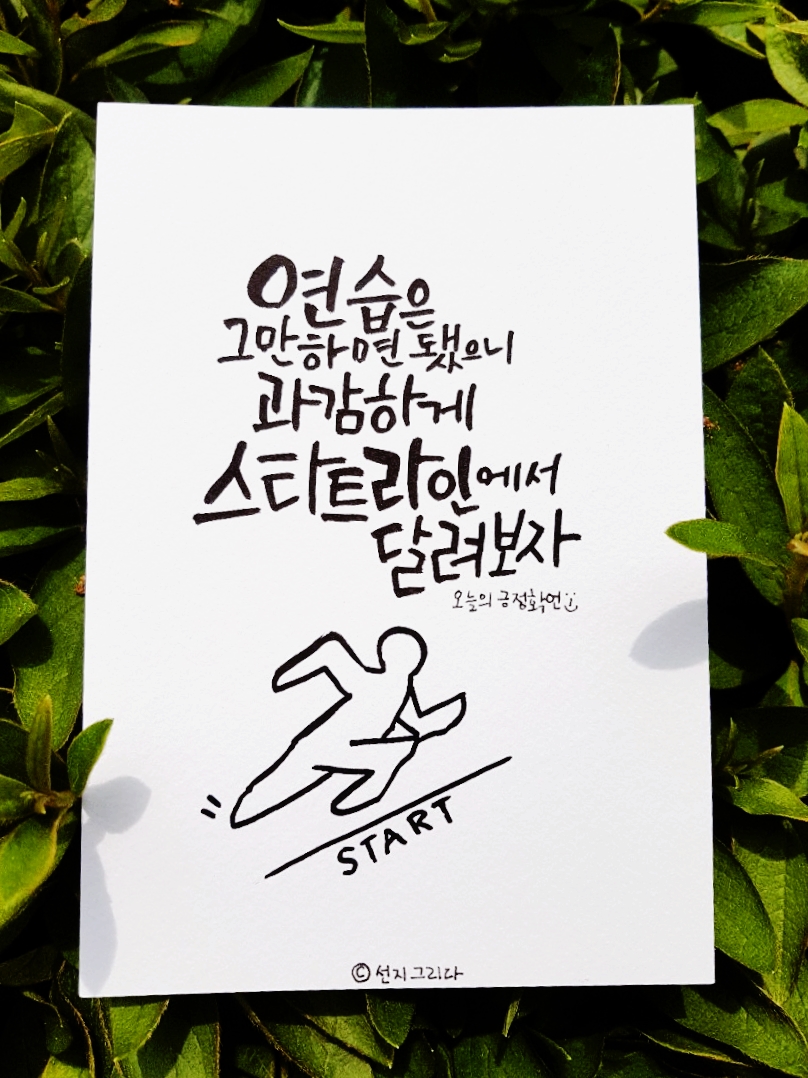 연습은
그만하면 됐으니
과감하게
스타트라인에서
달려보자
오늘의 긍정확언
START
© 선지그리다